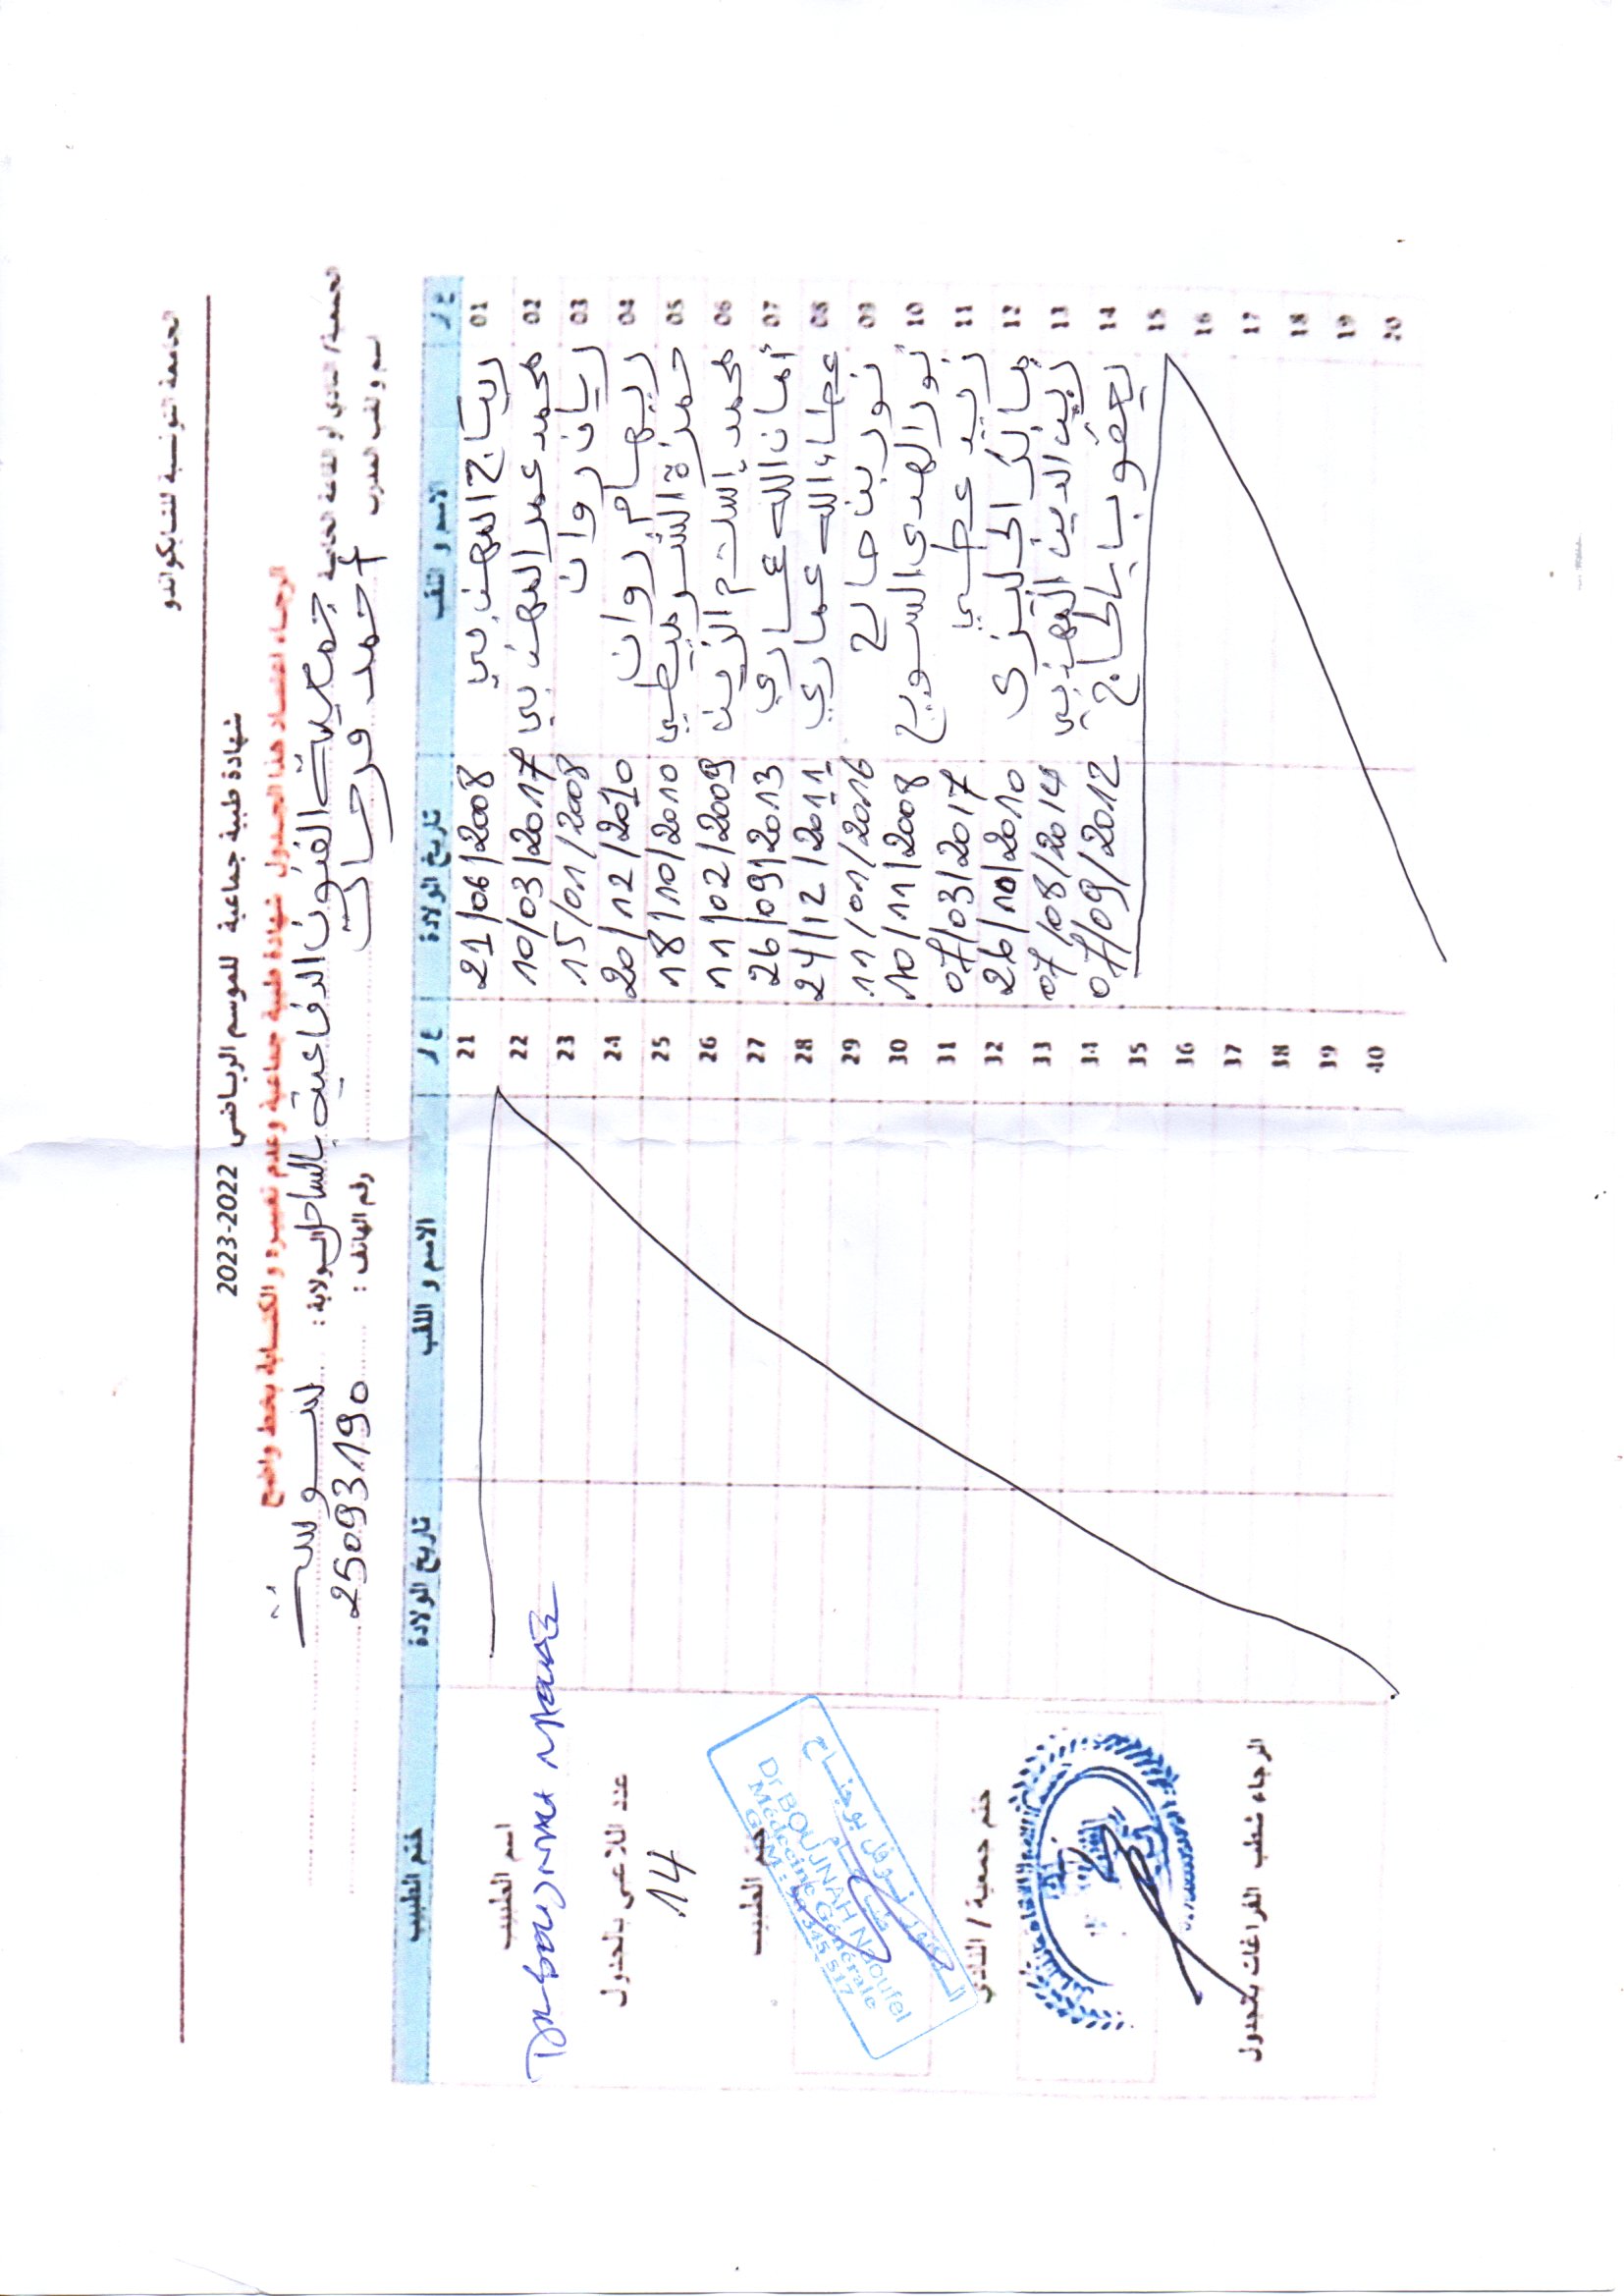 الجامعة التونسية للتايكواندو
شهادة طبية جماعية للموسم الرياضي 2022-2023
الرجاء اعتماد هذا الجدول شهادة طبية جماعية وعدم تغييره و الكتابة بخط واضح
الجمعية/ النادي/ او القاعة الخاصة جمعية الفنون الدفاعية بالساحل الولاية : سوسة
اسم و لقب المدرب أحمد فرحات رقم الهاتف : 25093190
ع/ر الاسم و اللقب تاريخ الولادة ع/ر الاسم و اللقب تاريخ الولادة ختم الطبيب
01 ريتاج المهذبي 21/06/2008 21
02 محمد عمر المهذبي 10/03/2017 22
03 ريان روان 15/01/2008 23
04 ريهام روان 20/12/2010 24
05 حمزة الشرميطي 18/10/2010 25
06 محمد الزين 11/02/2009 26
07 أمان الله عماري 26/09/2013 27
08 عطاء الله عماري 24/12/2011 28
09 نور بن صالح 11/01/2016 29
10 نور الهدى 10/11/2008 30
11 زيد عطي 07/03/2017 31
12 مالك 26/10/2010 32
13 زين الدين المهذبي 07/08/2014 33
14 يعقوب بالحاج 07/09/2012 34
15 35
16 36
17 37
18 38
19 39
20 40
اسم الطبيب
Dr BOUJNAH
عدد اللاعبي بالجدول
14
ختم الطبيب
الدكتور نوفل بوجناح
طب عام
Dr BOUJNAH Naoufel
Médecine Générale
GSM : 98 345 517
ختم جمعية / النادي
الرجاء شطب الفراغات بالجدول